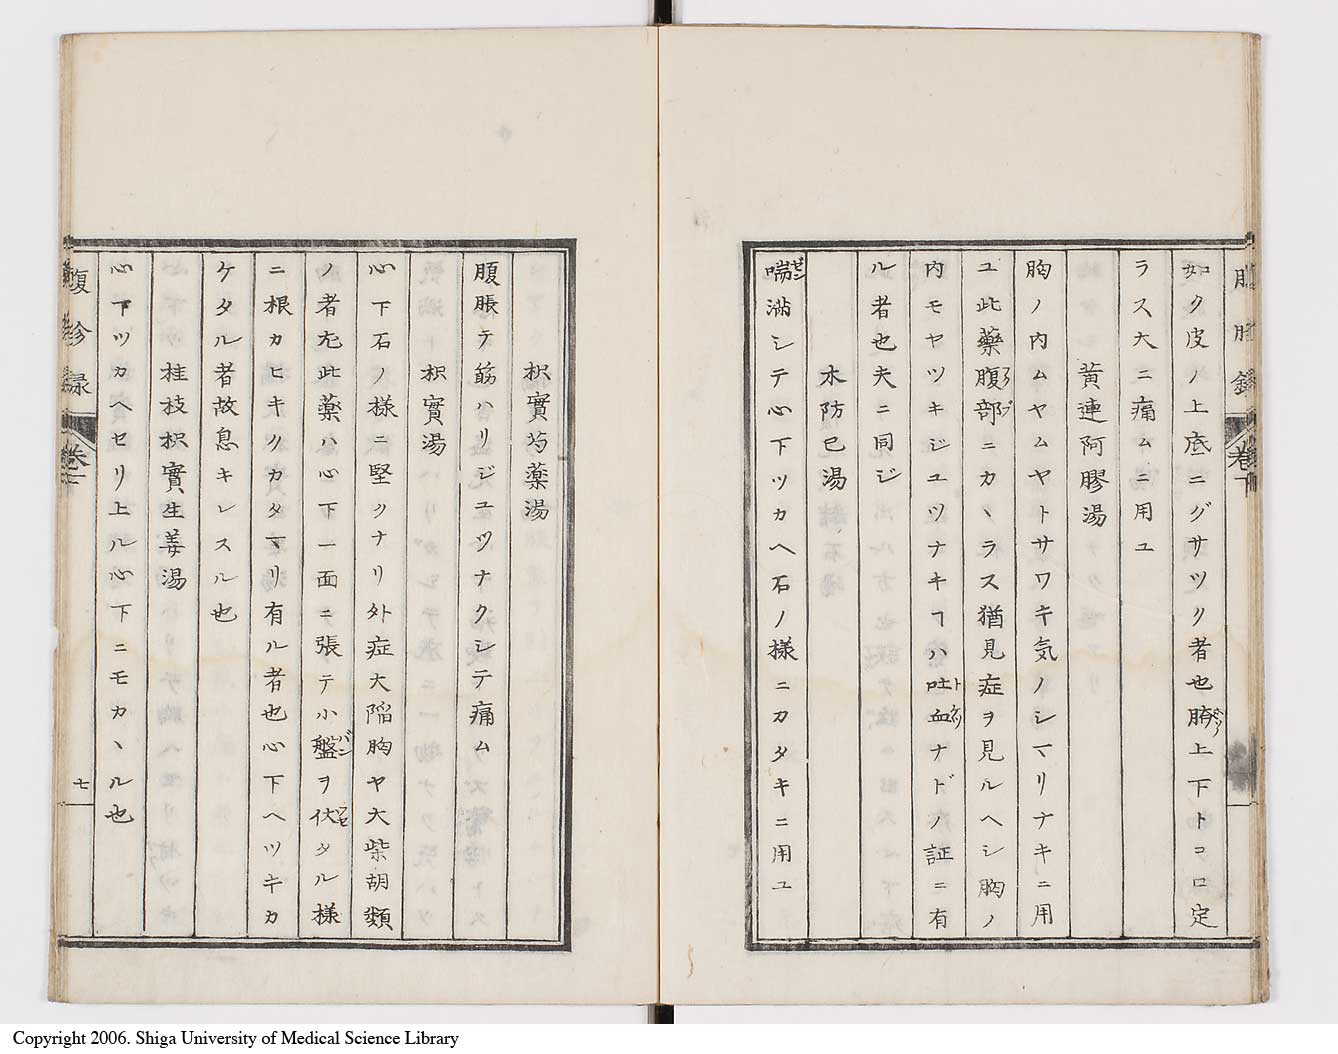 如ク皮ノ上底ニグサツク者也臍上下トコロ定
ラス大ニ痛ムニ用ユ
黄連阿膠湯
胸ノ内ムヤムヤトサワキ気ノシマリナキニ用
ユ此藥腹部ニカヽラス猶見症ヲ見ルヘシ胸ノ
内モヤツキジユツナキヿハ吐血ナドノ証ニ有
ル者也夫ニ同ジ
木防已湯
喘満シテ心下ツカヘ石ノ様ニカタキニ用ユ
枳實芍藥湯
腹脹テ筋ハリジユツナクシテ痛ム
枳實湯
心下石ノ様ニ堅クナリ外症大陥胸ヤ大柴胡類
ノ者尢此藥ハ心下一面ニ張テ小盤ヲ伏タル様
ニ根カヒキノカタマリ有ル者也心下ヘツキカ
ケタル者故息キレスル也
桂枝枳實生姜湯
心下ツカヘセリ上ル心下ニモカヽル也
腹診録 卷下 七
Copyright 2006. Shiga University of Medical Science Library